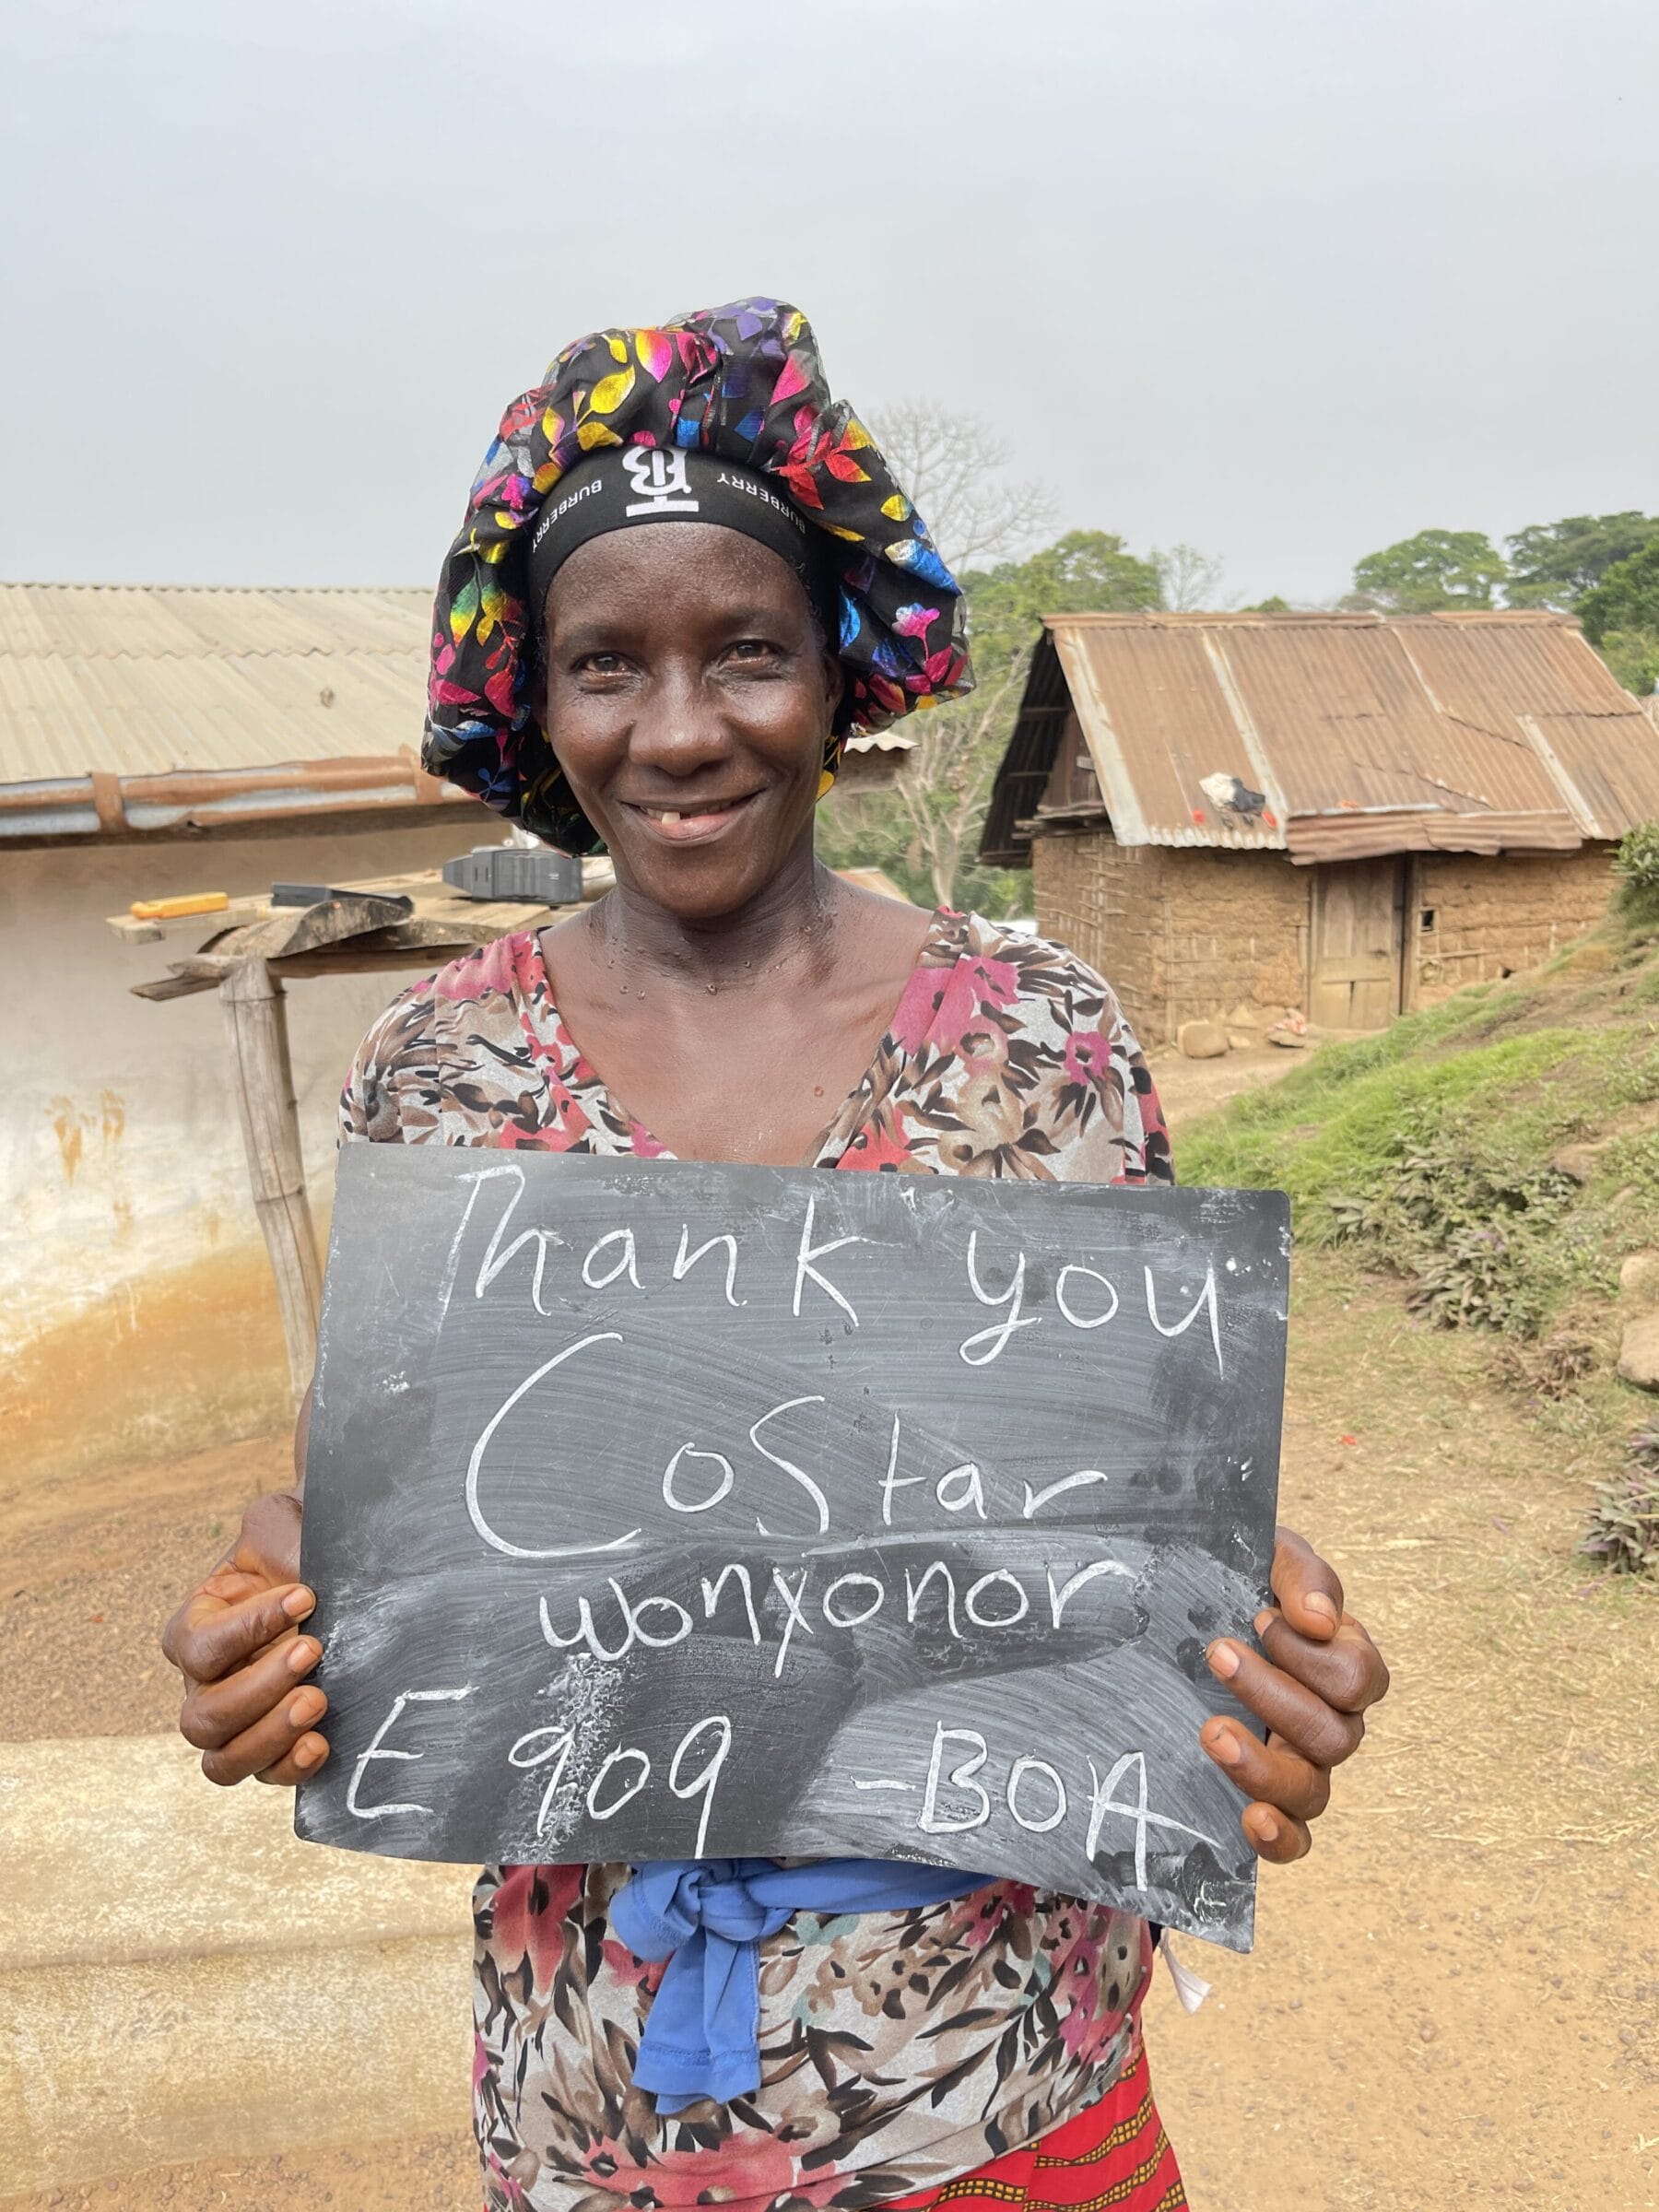 BURBERRY BURBERRY
Thank you
CoStar
wonyonor
E 909 -BOA